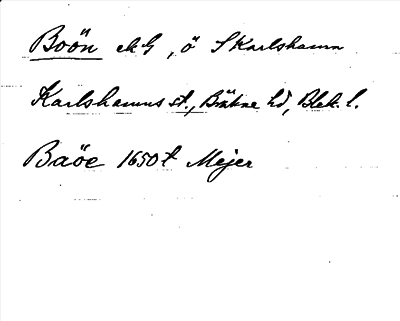 Boön ekG, ö S Karlshamn
Karlshamns st., Bräkne hd, Blek. l.
Baöe 1650t Mejer